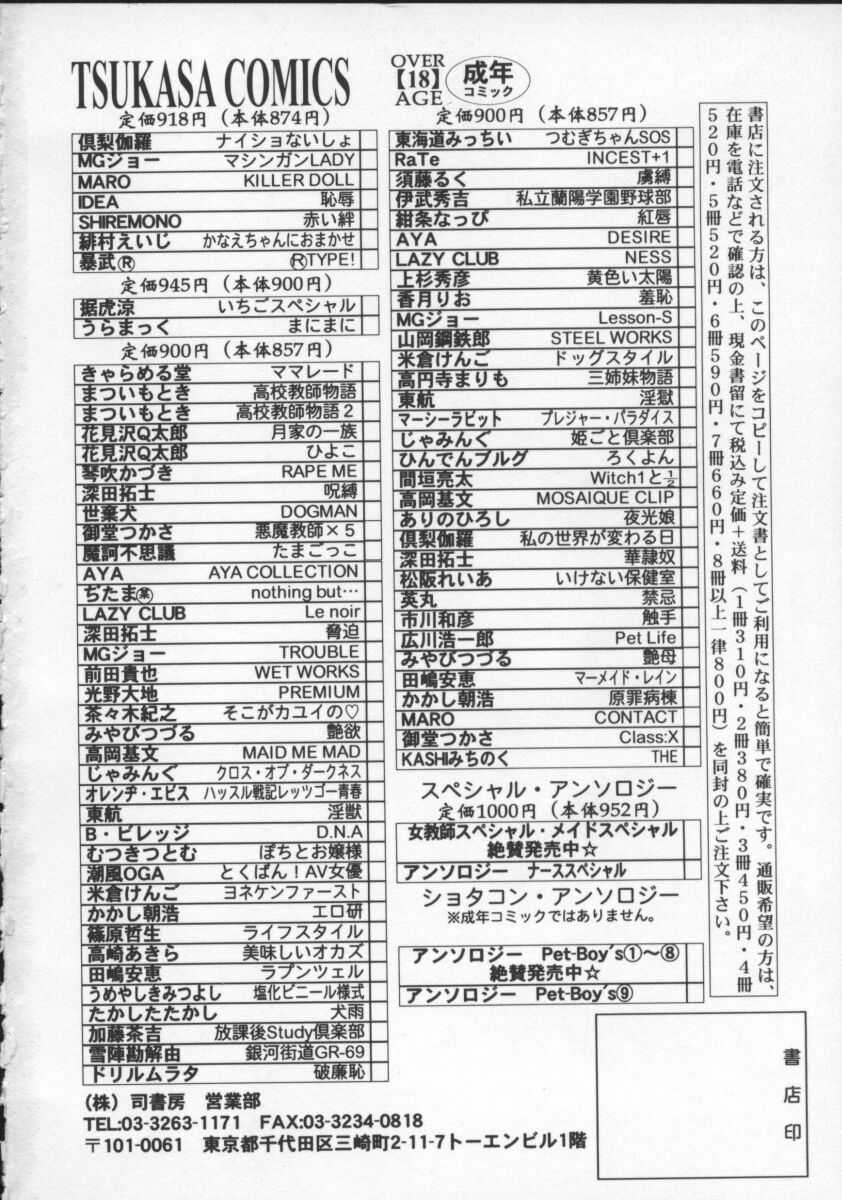 TSUKASA COMICS
OVER
【18】
AGE
成年
コミック
定価918円（本体874円）
倶梨伽羅 ナイショないしょ
MGジョー マシンガンLADY
MARO KILLER DOLL
IDEA 恥辱
SHIREMONO 赤い絆
緋村えいじ かなえちゃんにおまかせ
暴武Ⓡ ⓇTYPE!
定価945円（本体900円）
据虎涼 いちごスペシャル
うらまっく まにまに
定価900円（本体857円）
きゃらめる堂 ママレード
まついもとき 高校教師物語
まついもとき 高校教師物語2
花見沢Q太郎 月家の一族
花見沢Q太郎 ひよこ
琴吹かづき RAPE ME
深田拓士 呪縛
世棄犬 DOGMAN
御堂つかさ 悪魔教師×5
魔訶不思議 たまごっこ
AYA AYA COLLECTION
ぢたま㊣ nothing but…
LAZY CLUB Le noir
深田拓士 脅迫
MGジョー TROUBLE
前田貴也 WET WORKS
光野大地 PREMIUM
茶々木紀之 そこがカユイの♡
みやびつづる 艶欲
高岡基文 MAID ME MAD
じゃみんぐ クロス・オブ・ダークネス
オレンヂ・エビス ハッスル戦記レッツゴー青春
東航 淫獣
B・ビレッジ D.N.A
むつきつとむ ぽちとお嬢様
潮風OGA とくばん！AV女優
米倉けんご ヨネケンファースト
かかし朝浩 エロ研
篠原哲生 ライフスタイル
高崎あきら 美味しいオカズ
田嶋安恵 ラプンツェル
うめやしきみつよし 塩化ビニール様式
たかしたたかし 犬雨
加藤茶吉 放課後Study倶楽部
雪陣勘解由 銀河街道GR-69
ドリルムラタ 破廉恥
定価900円（本体857円）
東海道みっちい つむぎちゃんSOS
RaTe INCEST+1
須藤るく 虜縛
伊武秀吉 私立蘭陽学園野球部
紺条なっぴ 紅唇
AYA DESIRE
LAZY CLUB NESS
上杉秀彦 黄色い太陽
香月りお 羞恥
MGジョー Lesson-S
山岡鋼鉄郎 STEEL WORKS
米倉けんご ドッグスタイル
高円寺まりも 三姉妹物語
東航 淫獄
マーシーラビット プレジャー・パラダイス
じゃみんぐ 姫ごと倶楽部
ひんでんブルグ ろくよん
間垣亮太 Witch1と½
高岡基文 MOSAIQUE CLIP
ありのひろし 夜光娘
倶梨伽羅 私の世界が変わる日
深田拓士 華隷奴
松阪れいあ いけない保健室
英丸 禁忌
市川和彦 触手
広川浩一郎 Pet Life
みやびつづる 艶母
田嶋安恵 マーメイド・レイン
かかし朝浩 原罪病棟
MARO CONTACT
御堂つかさ Class:X
KASHIみちのく THE
スペシャル・アンソロジー
定価1000円（本体952円）
女教師スペシャル・メイドスペシャル
絶賛発売中☆
アンソロジー ナーススペシャル
ショタコン・アンソロジー
※成年コミックではありません。
アンソロジー Pet-Boy's①～⑧
絶賛発売中☆
アンソロジー Pet-Boy's⑨
書店に注文される方は、このページをコピーして注文書としてご利用になると簡単で確実です。通販希望の方は、
在庫を電話などで確認の上、現金書留にて税込み定価＋送料（1冊310円・2冊380円・3冊450円・4冊
520円・5冊520円・6冊590円・7冊660円・8冊以上一律800円）を同封の上ご注文下さい。
書店印
（株）司書房 営業部
TEL:03-3263-1171 FAX:03-3234-0818
〒101-0061 東京都千代田区三崎町2-11-7トーエンビル1階